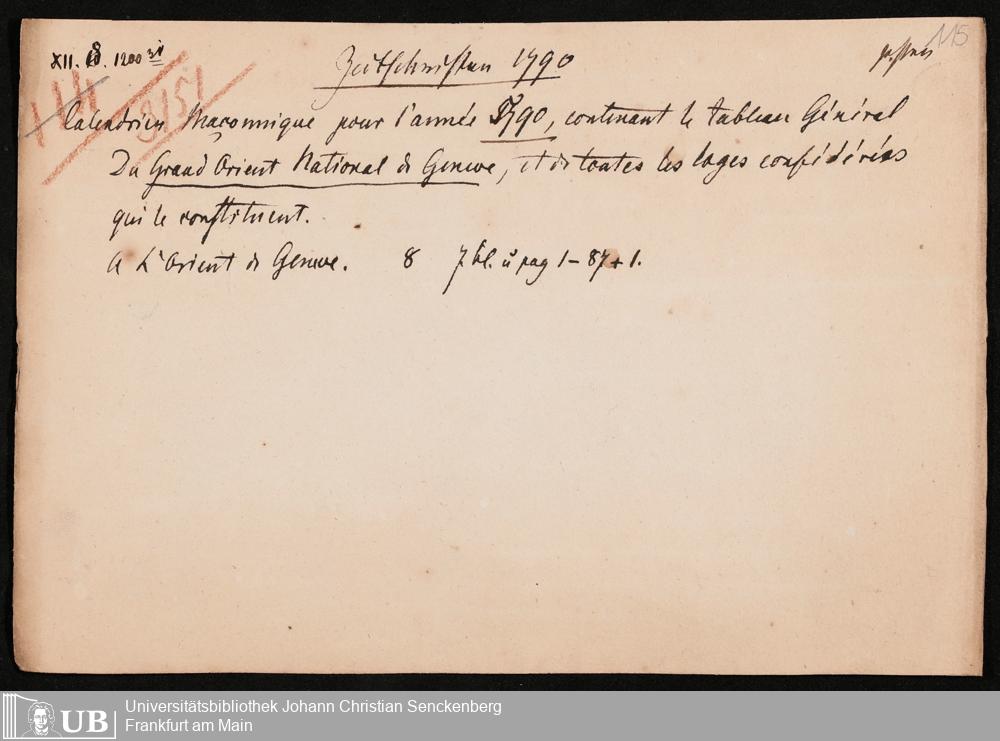 115
XII. 8. 1200 31
Zeitschriften 1790
Calendrier Maçonnique pour l'année 1790, contenant le tableau Général
Du Grand Orient National de Geneve, et de toutes les loges confédérées
qui le constituent.
A L'Orient de Geneve. 8 7 bl. u pag 1-87+1.
UB Universitätsbibliothek Johann Christian Senckenberg
Frankfurt am Main